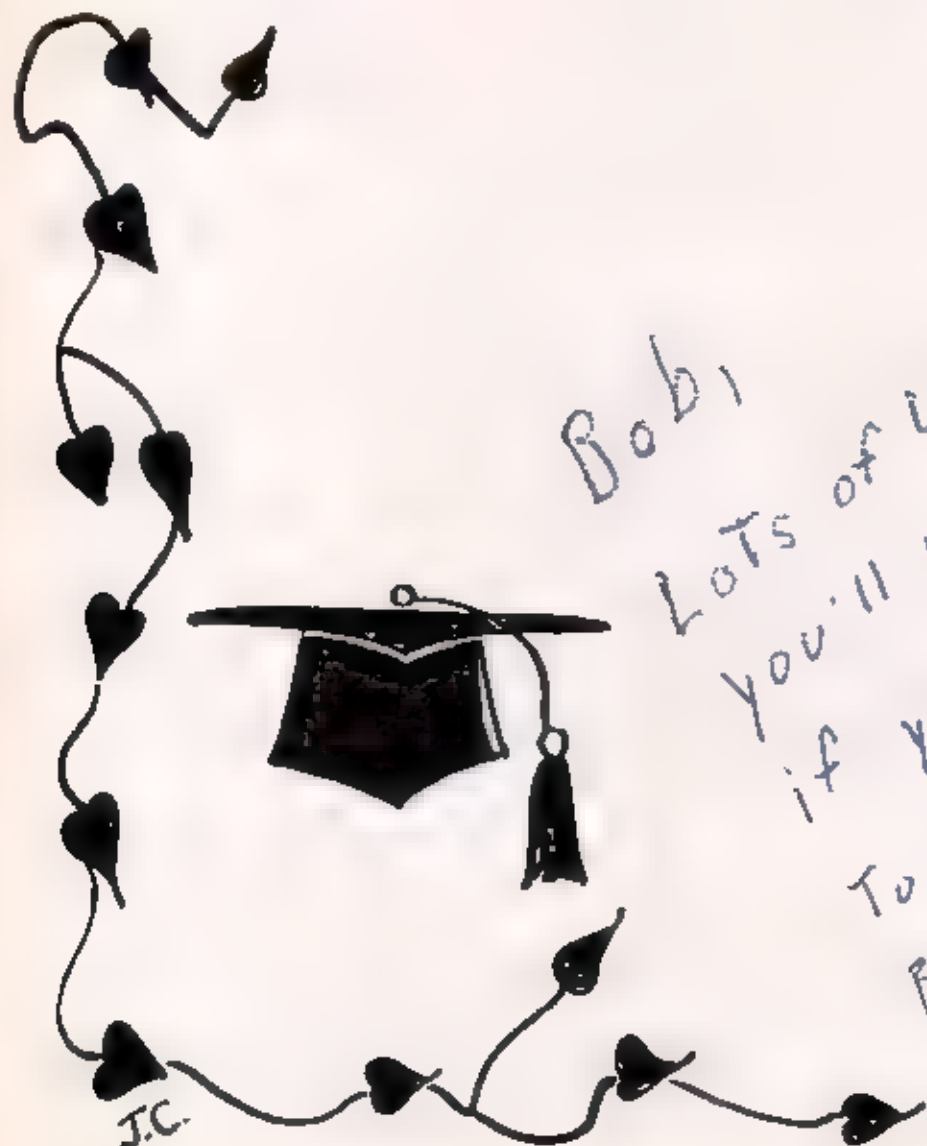 Bob,
Lots of
you'll
if
To
J.C.